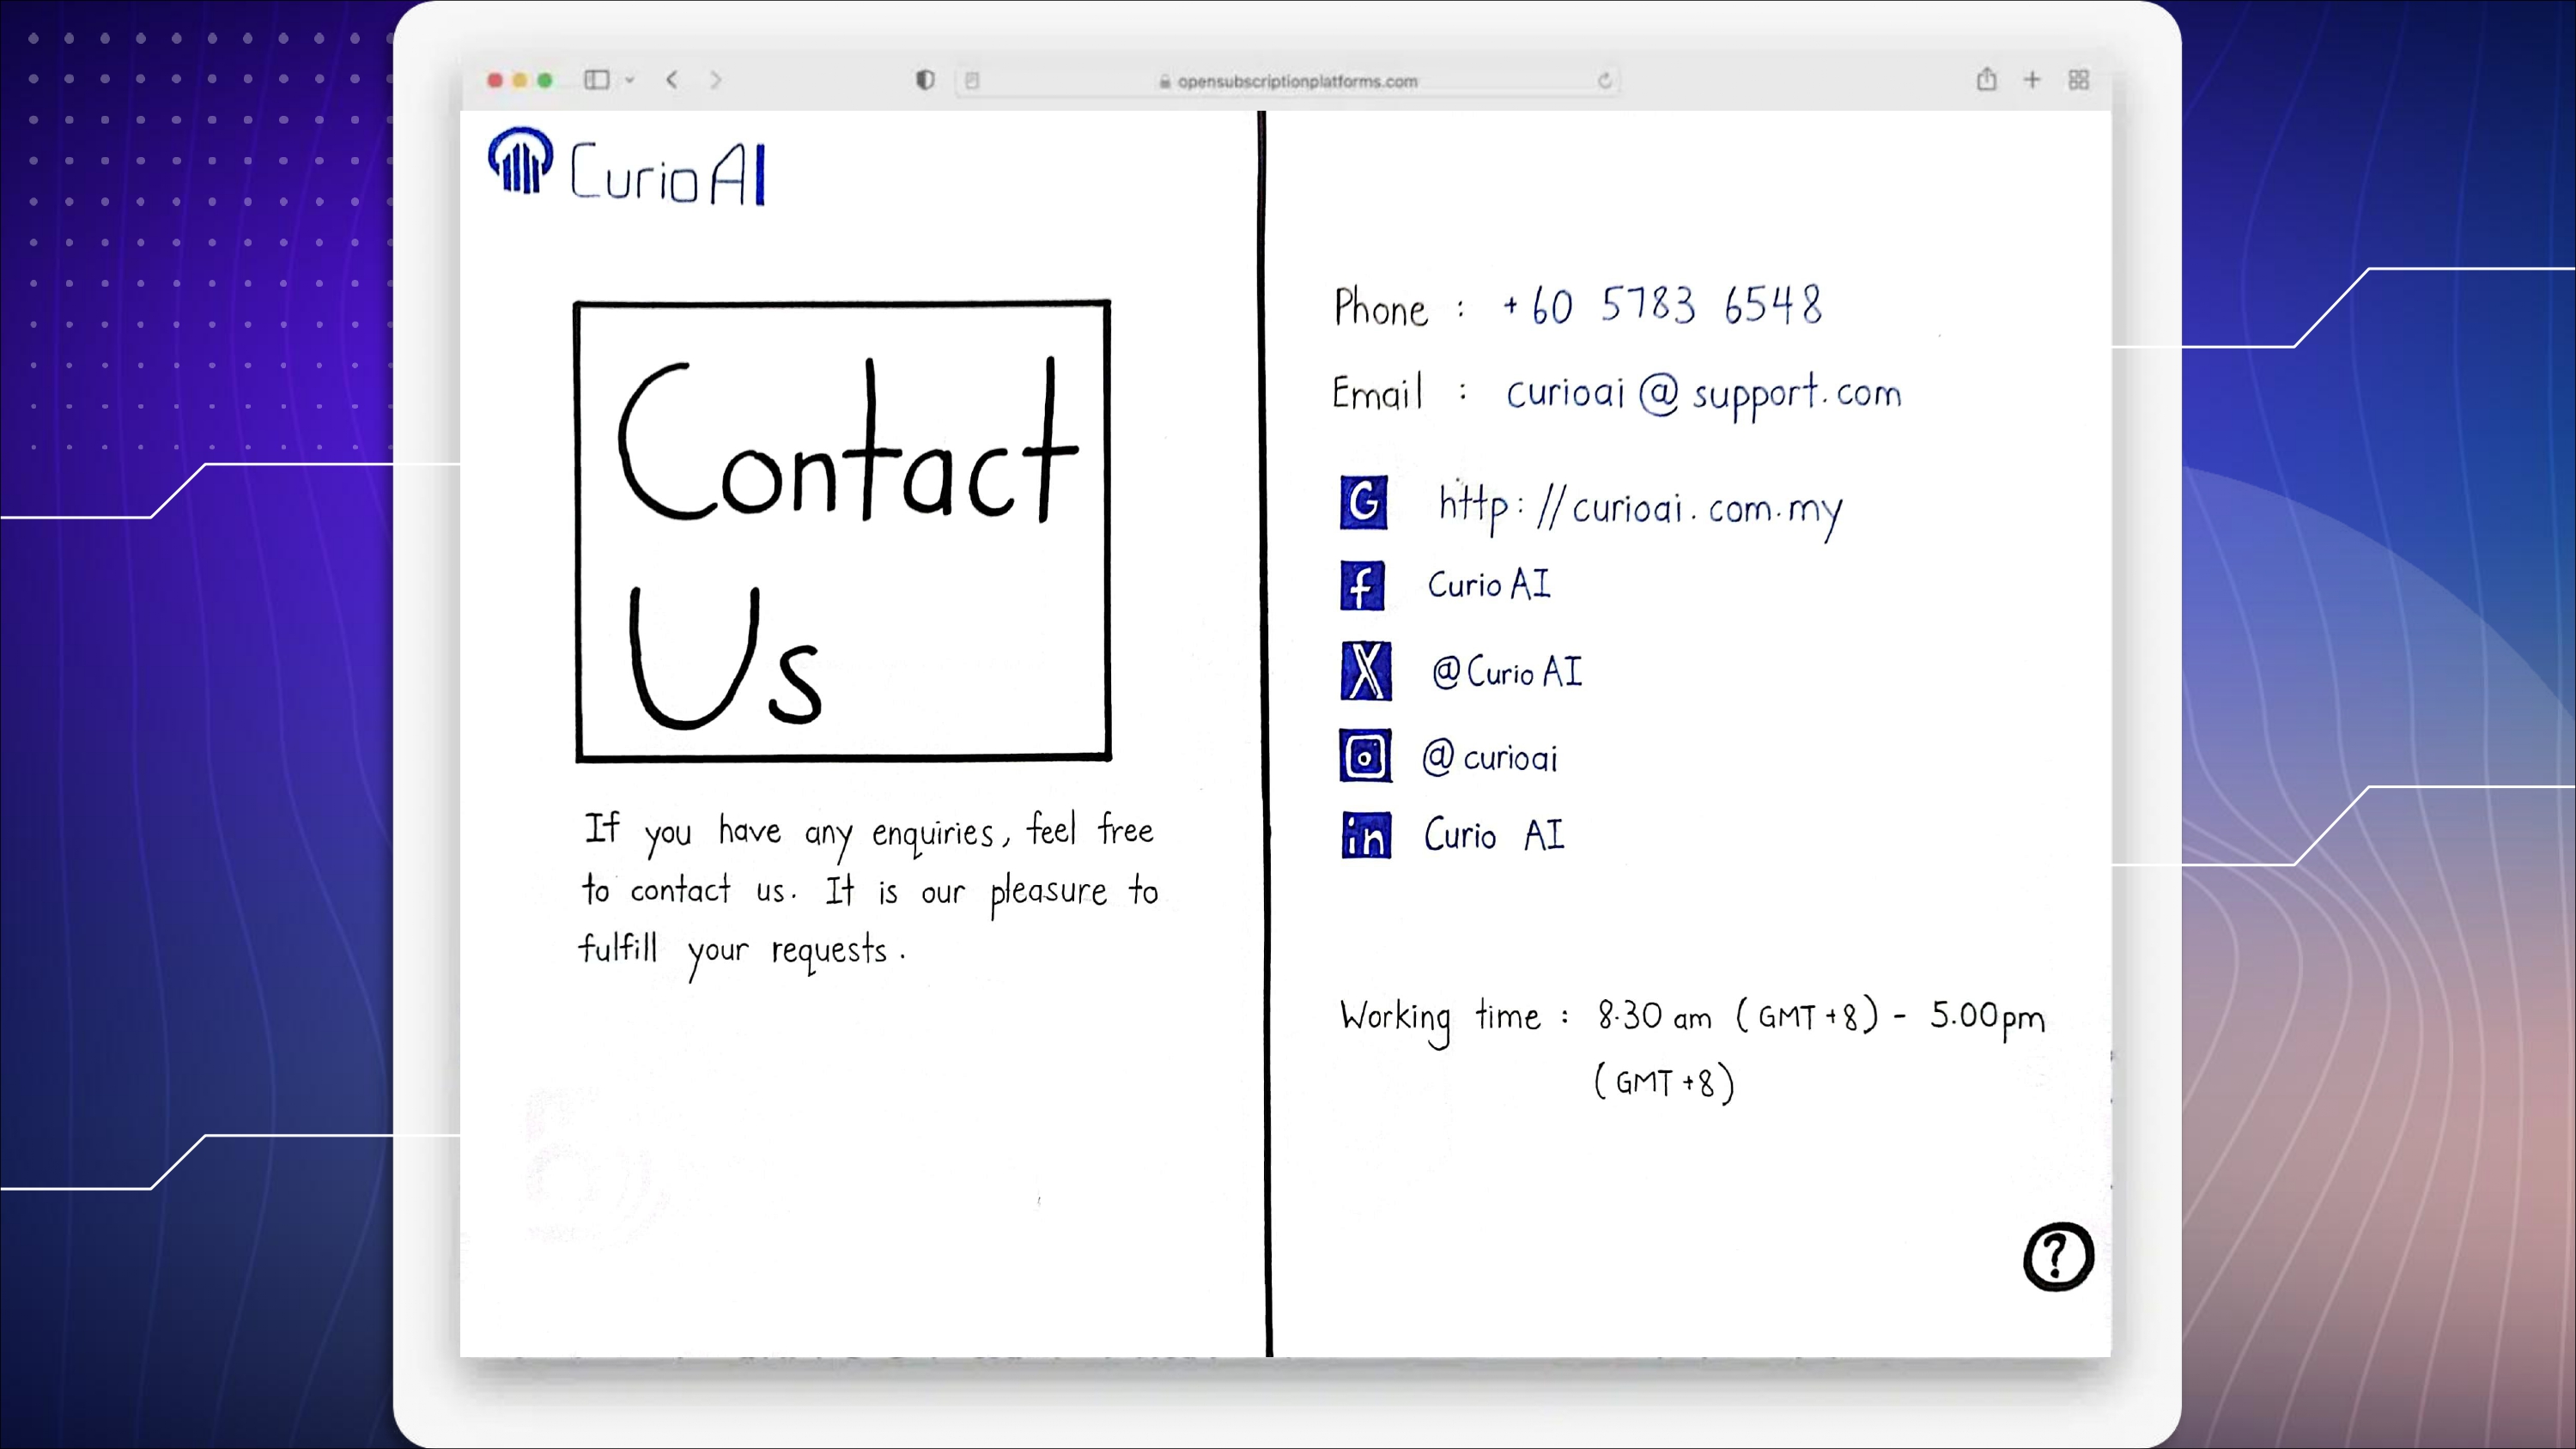 opensubscriptionplatforms.com
CurioAI
Contact
Us
If you have any enquiries, feel free
to contact us. It is our pleasure to
fulfill your requests.
Phone : +60 5783 6548
Email : curioai@support.com
G http://curioai.com.my
f Curio AI
X @Curio AI
@curioai
in Curio AI
Working time : 8.30 am (GMT+8) - 5.00pm
(GMT+8)
?